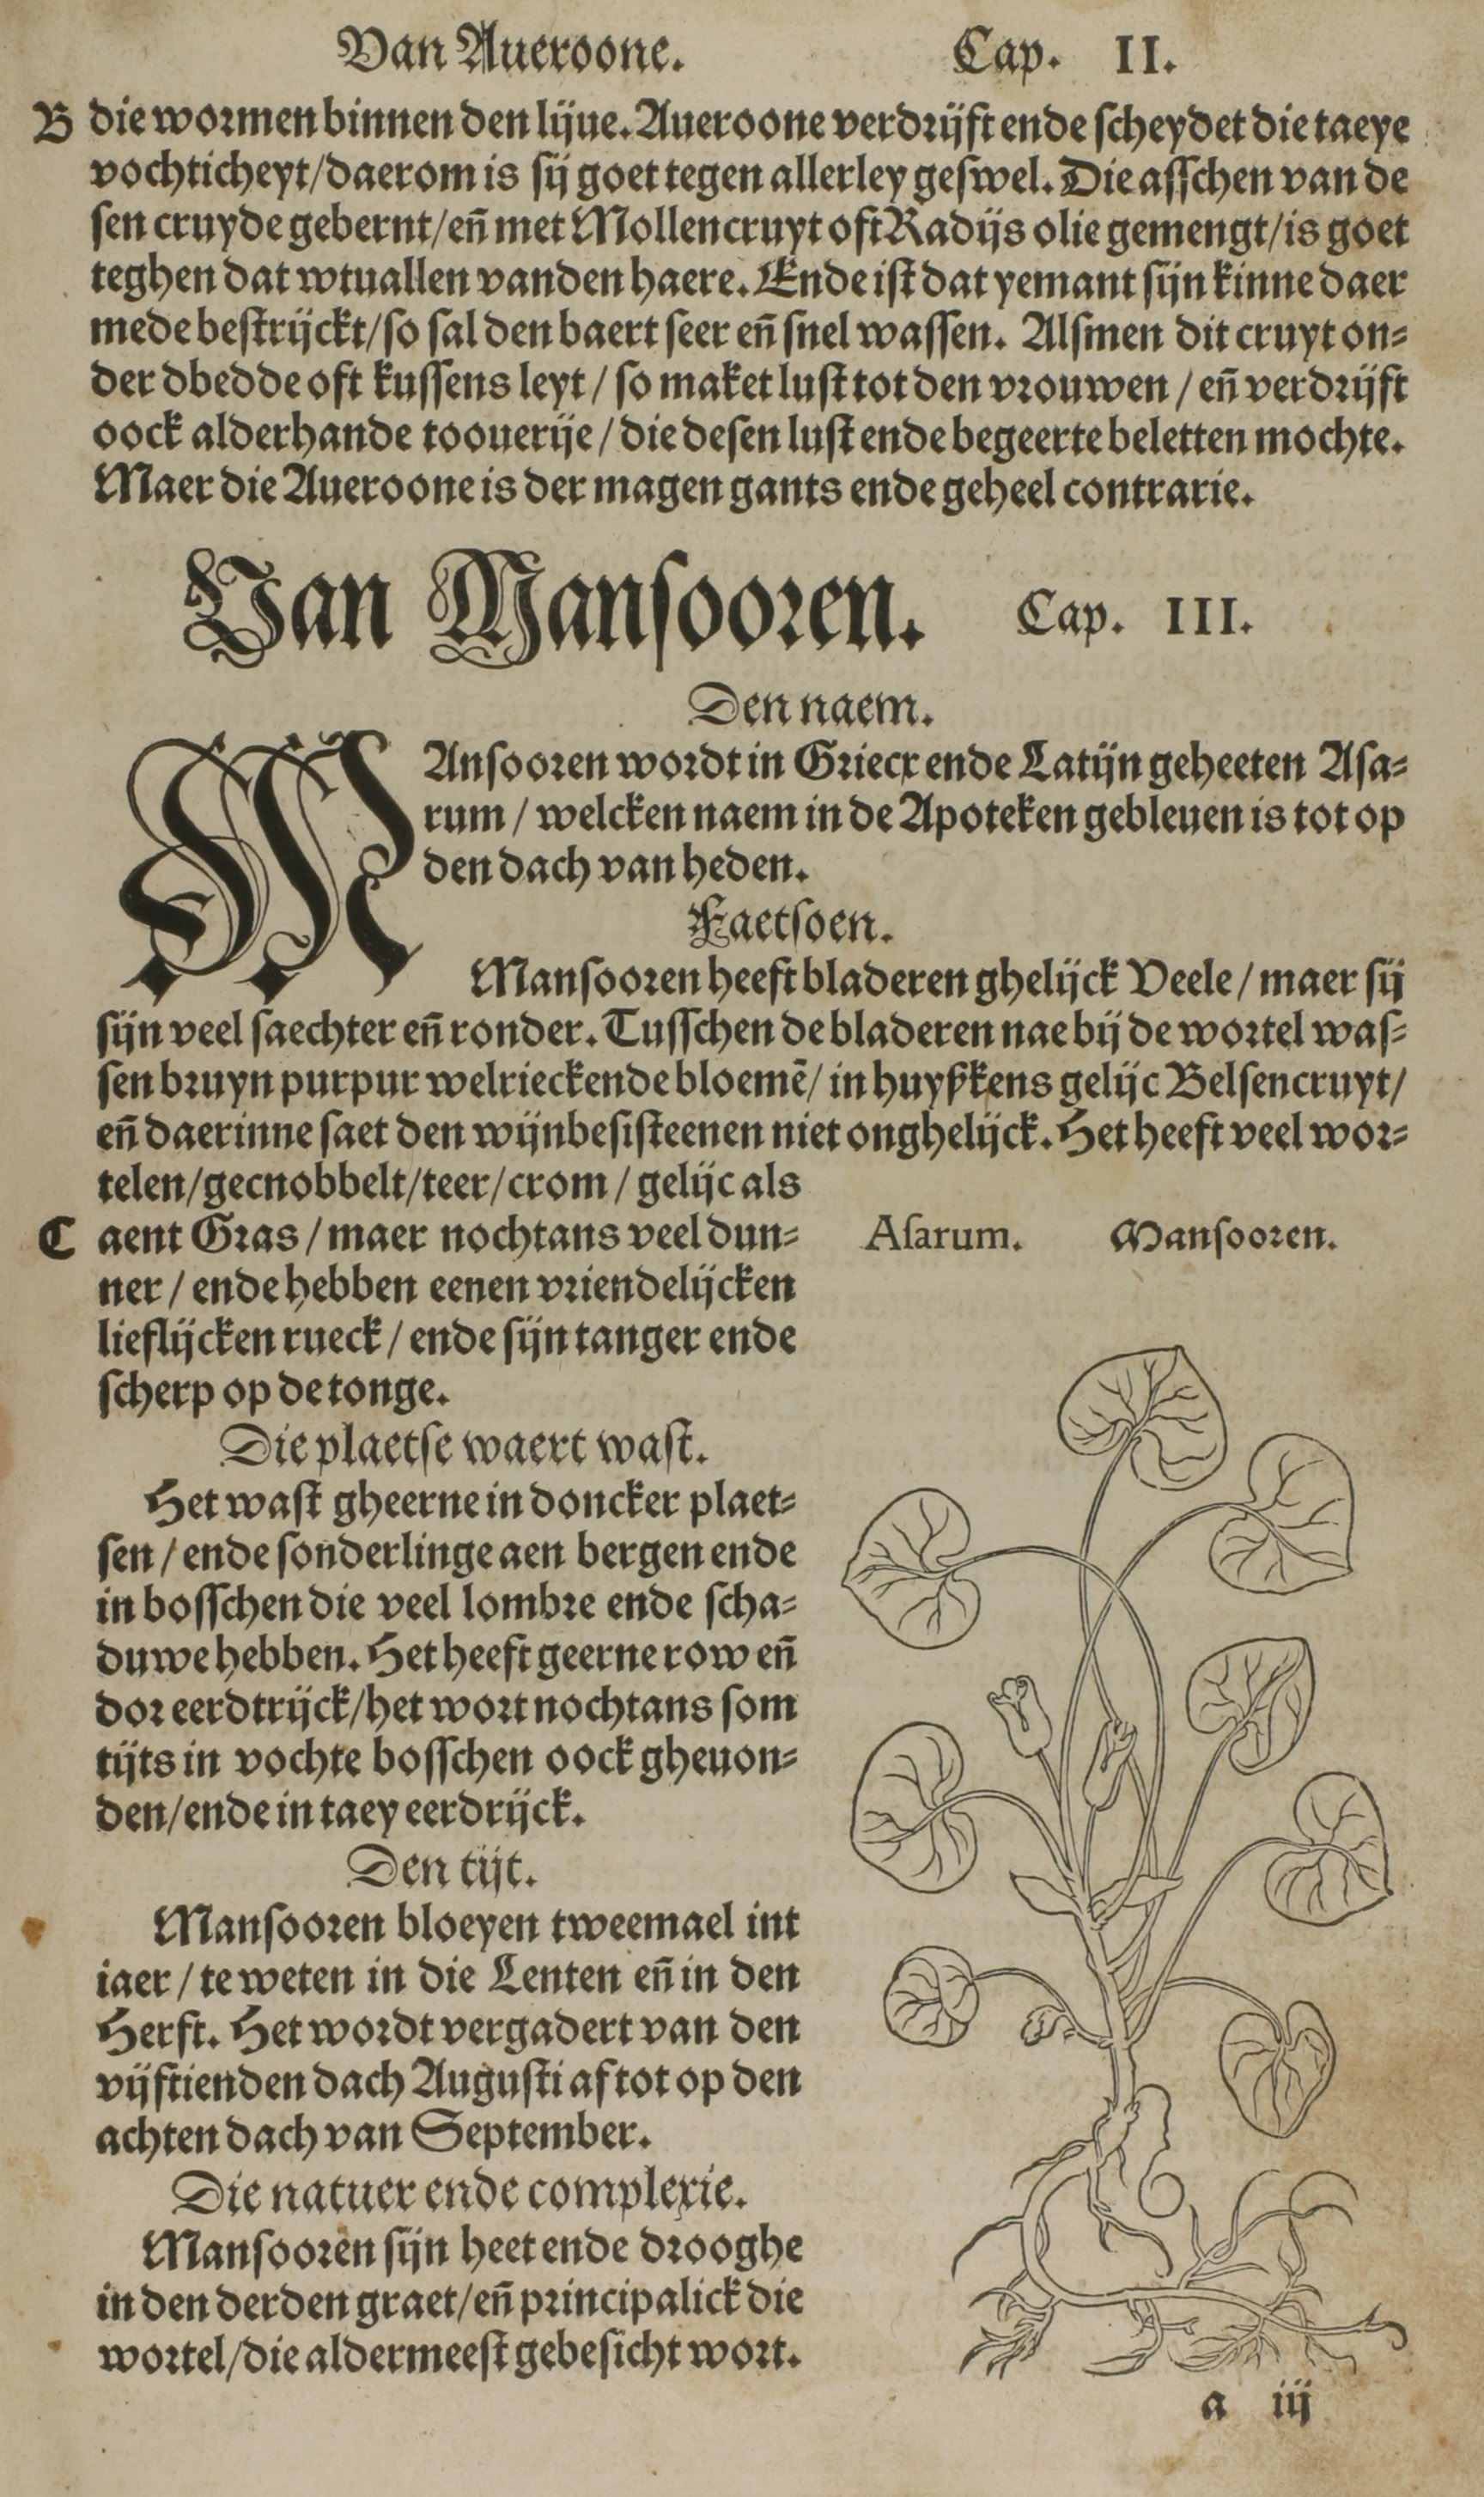 Van Aueroone. Cap. II.
B die wormen binnen den lijue. Aueroone verdrijft ende scheydet die taeye
vochticheyt/daerom is sij goet tegen allerley geswel. Die asschen van de
sen cruyde gebernt/en̄ met Mollencruyt oft Radijs olie gemengt/is goet
teghen dat wtuallen vanden haere. Ende ist dat yemant sijn kinne daer
mede bestrijckt/so sal den baert seer en̄ snel wassen. Alsmen dit cruyt on⸗
der dbedde oft kussens leyt / so maket lust tot den vrouwen / en̄ verdrijft
oock alderhande toouerije / die desen lust ende begeerte beletten mochte.
Maer die Aueroone is der magen gants ende geheel contrarie.
Van Mansooren. Cap. III.
Den naem.
MAnsooren wordt in Griecx ende Latijn geheeten Asa⸗
rum / welcken naem in de Apoteken gebleuen is tot op
den dach van heden.
Faetsoen.
Mansooren heeft bladeren ghelijck Veele / maer sij
sijn veel saechter en̄ ronder. Tusschen de bladeren nae bij de wortel was⸗
sen bruyn purpur welrieckende bloemē/ in huyßkens gelijc Belsencruyt/
en̄ daerinne saet den wijnbesisteenen niet onghelijck. Het heeft veel wor⸗
telen/gecnobbelt/teer/crom / gelijc als
C aent Gras / maer nochtans veel dun⸗
ner / ende hebben eenen vriendelijcken
lieflijcken rueck / ende sijn tanger ende
scherp op de tonge.
Die plaetse waert wast.
Het wast gheerne in doncker plaet⸗
sen / ende sonderlinge aen bergen ende
in bosschen die veel lombre ende scha⸗
duwe hebben. Het heeft geerne row en̄
dor eerdtrijck/het wort nochtans som
tijts in vochte bosschen oock gheuon⸗
den/ende in taey eerdrijck.
Den tijt.
Mansooren bloeyen tweemael int
iaer / te weten in die Lenten en̄ in den
Herfst. Het wordt vergadert van den
vijftienden dach Augusti af tot op den
achten dach van September.
Die natuer ende complexie.
Mansooren sijn heet ende drooghe
in den derden graet/en̄ principalick die
wortel/die aldermeest gebesicht wort.
Asarum. Mansooren.
a iij